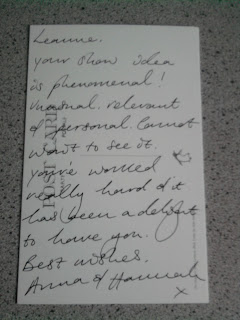 Leanne.
your show idea
is phenomenal!
unusual. relevant
& personal. Cannot
wait to see it.
you've worked
really hard & it
has been a delight
to have you.
Best wishes.
Anna & Hannah
x
POST CARD